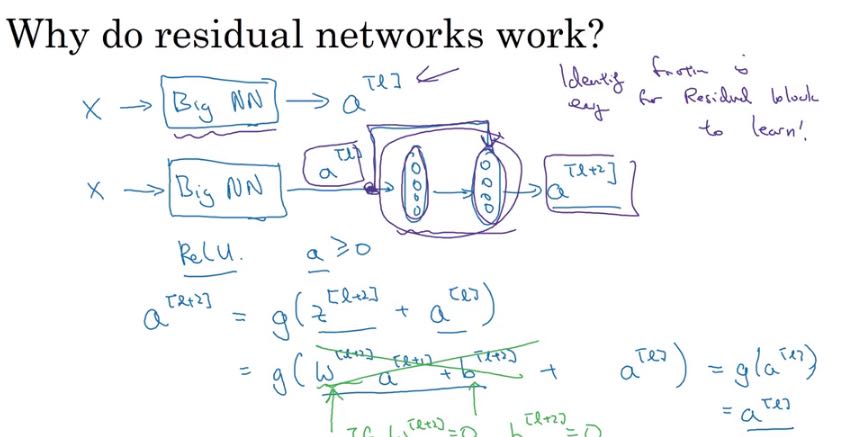 Why do residual networks work?
X → Big NN → a^[l]
Identity function is
easy for Residual block
to learn!
X → Big NN a^[l] → a^[l+2]
ReLU. a ≥ 0
a^[l+2] = g(z^[l+2] + a^[l])
= g(W^[l+2] a^[l+1] + b^[l+2] + a^[l]) = g(a^[l])
= a^[l]
If W^[l+2] = 0 b^[l+2] = 0